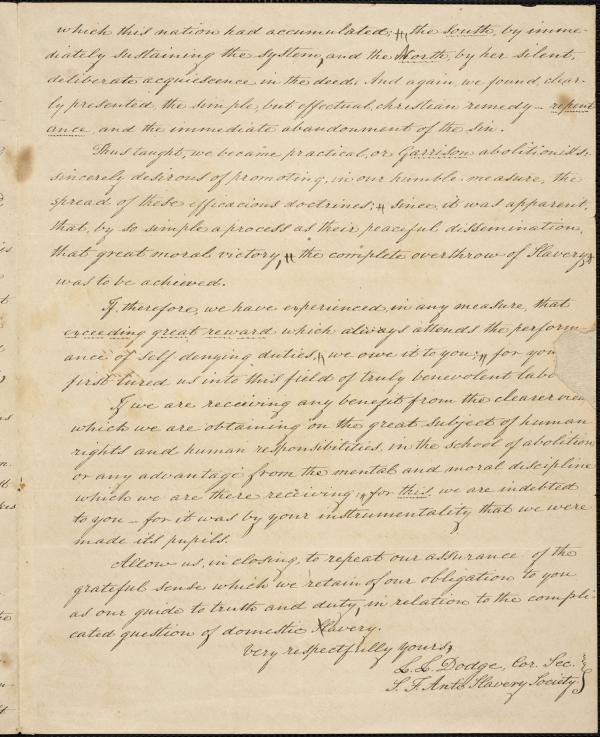 which this nation had accumulated; " the South, by imme-
diately sustaining the system, and the North, by her silent,
deliberate acquiescence in the deed. And again, we found, clear-
ly presented, the simple, but effectual, christian remedy – repent
ance, and the immediate abandonment of the sin.
Thus taught, we became practical, or Garrison abolitionists;
sincerely desirous of promoting, in our humble measure, the
spread of these efficacious doctrines; " since, it was apparent,
that, by so simple a process as their peaceful dissemination,
that great moral victory, " the complete overthrow of Slavery,
was to be achieved.
If, therefore, we have experienced, in any measure, that
exceeding great reward which always attends the perform-
ance of self-denying duties, " we owe it to you; " for you
first lured us into this field of truly benevolent labo
If we are receiving any benefit from the clearer view
which we are obtaining on the great subject of human
rights and human responsibilities, in the school of abolition
or any advantage from the mental and moral discipline
which we are there receiving, " for this, we are indebted
to you – for it was by your instrumentality that we were
made its pupils.
Allow us, in closing, to repeat our assurance of the
grateful sense which we retain of our obligation to you
as our guide to truth and duty, in relation to the compli-
cated question of domestic Slavery.
Very respectfully yours,
L. L. Dodge, Cor. Sec.
S. F. Anti Slavery Society